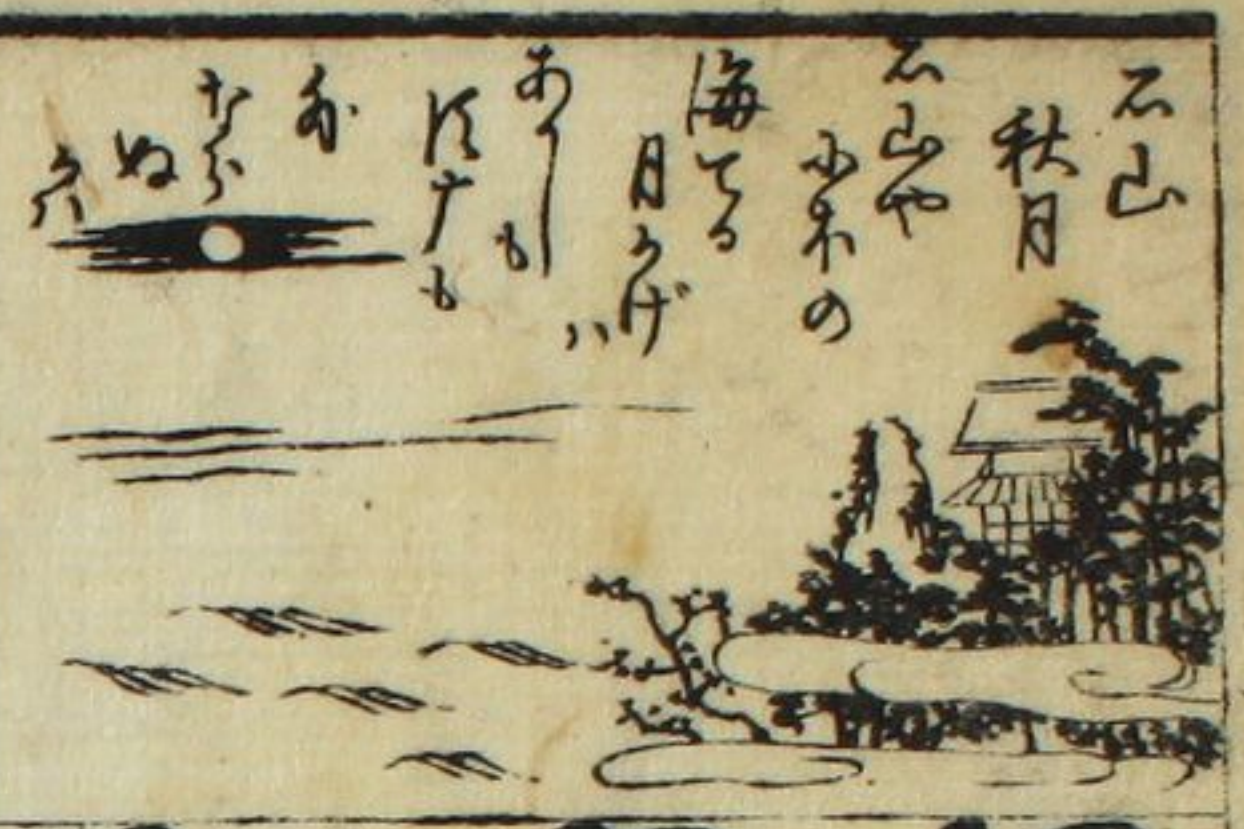 石山
秋月
石山や
にほの
海てる
月かげ
ハ
あかし
も
須广も
外
なら
ぬ
かハ